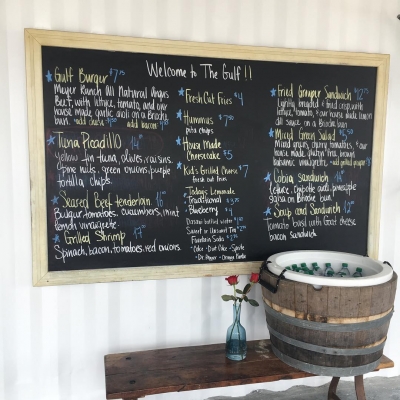 Welcome to The Gulf!!
Gulf Burger $7.75
Meyer Ranch All Natural Angus
Beef, with lettuce, tomato, and our
house made garlic aioli on a Brioche
bun. add cheese add bacon
Tuna Picadillo 14
Yellow fin tuna, olives, raisins,
Pine nuts, green onions, purple
tortilla chips.
Seared Beef tenderloin 16
Bulgur, tomatoes, cucumbers, mint
lemon vinaigrette.
Grilled Shrimp 17
Spinach, bacon, tomatoes, red onions.
Fresh Cut Fries $4
Hummus $7
pita chips
House Made
Cheesecake $5
Kid's Grilled Cheese $7
fresh cut fries
Today's Lemonade
Traditional $3.75
Blueberry $4
Sweet or Unsweet Tea
Fountain Soda
Coke - Diet Coke - Sprite
Dr. Pepper - Orange Fanta
Fried Grouper Sandwich
Lightly breaded & fried crisp with
lettuce, tomato, & our house made lemon
dill sauce on a Brioche bun
Mixed Green Salad $5.50
Mixed greens, cherry tomatoes, & our
house made gluten free brown
balsamic vinaigrette. add grilled grouper
Cobia Sandwich
lettuce, chipotle and pineapple
salsa on Brioche bun.
Soup and Sandwich 12
Tomato basil with Goat cheese
bacon sandwich.